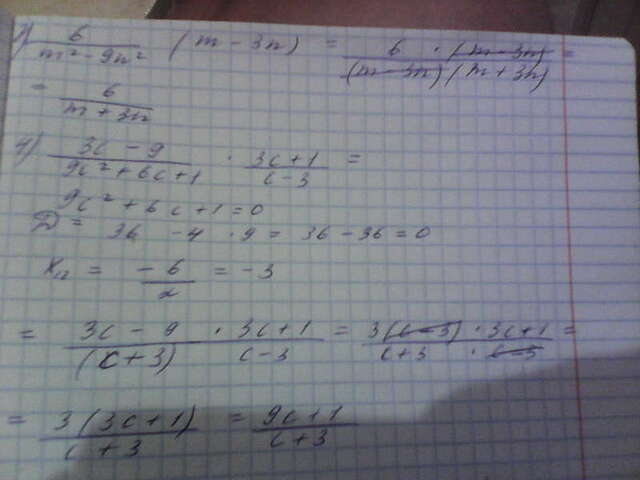 3) 6/(m² - 9n²) (m - 3n) = 6 · (m - 3n)/(m - 3n)(m + 3n) =
= 6/(m + 3n)
4) (3c - 9)/(9c² + 6c + 1) · (3c + 1)/(c - 3) =
9c² + 6c + 1 = 0
D = 36 - 4 · 9 = 36 - 36 = 0
x₁₂ = -6/2 = -3
= (3c - 9)/(c + 3) · (3c + 1)/(c - 3) = 3(c - 3) · 3c + 1/c + 3 · c - 3 =
= 3(3c + 1)/(c + 3) = (9c + 1)/(c + 3)